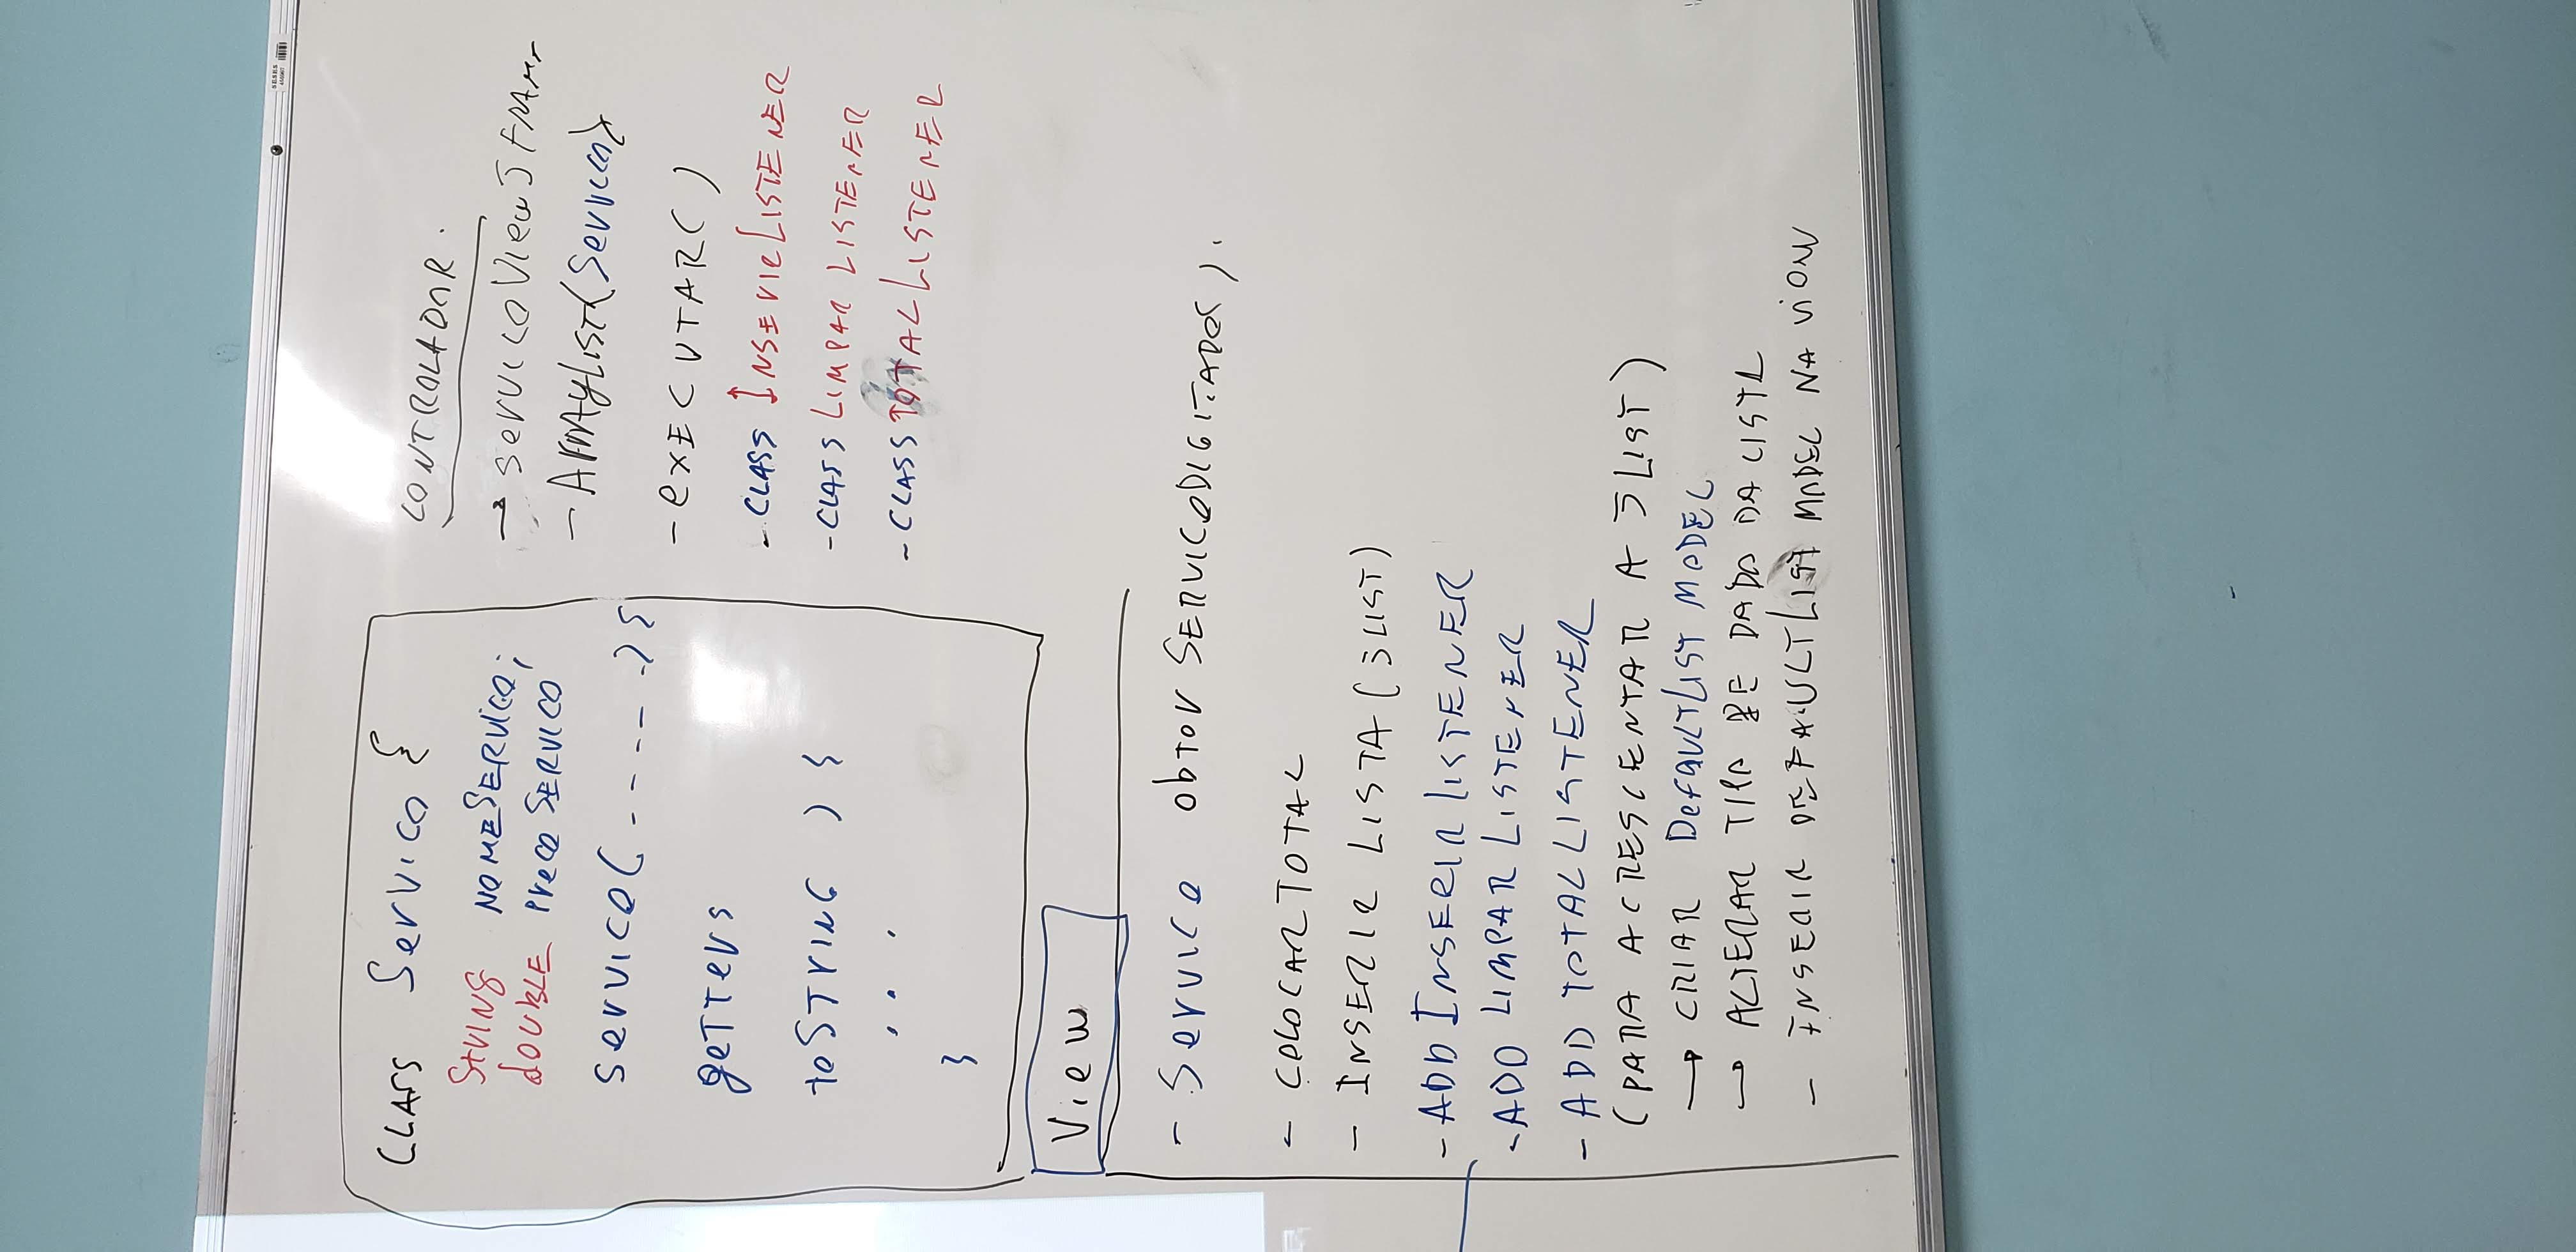 CLASS Servico {
String NOMESERVICO;
double preco SERVICO
servico( - - - - - ) {
getters
toSTRING ) {
. . .
}
CONTROLADOR.
→ servicoViewJFRAMe
- ArrayList<Servico>
- EXECUTAR( )
- CLASS INSERIR LISTENER
- CLASS LIMPAR LISTENER
- CLASS TOTAL LISTENER
View
- Servico obter SERVICODIGITADO( ).
- COLOCAR TOTAL
- INSERIR LISTA (JLIST)
- ADD INSERIR LISTENER
- ADD LIMPAR LISTENER
- ADD TOTAL LISTENER
(PARA ACRESCENTAR A JLIST)
→ CRIAR DefaultList MODEL
→ ALTERAR TIPO DE DADO DA LISTA
- INSERIR DEFAULTLIST MODEL NA VIEW
SESES